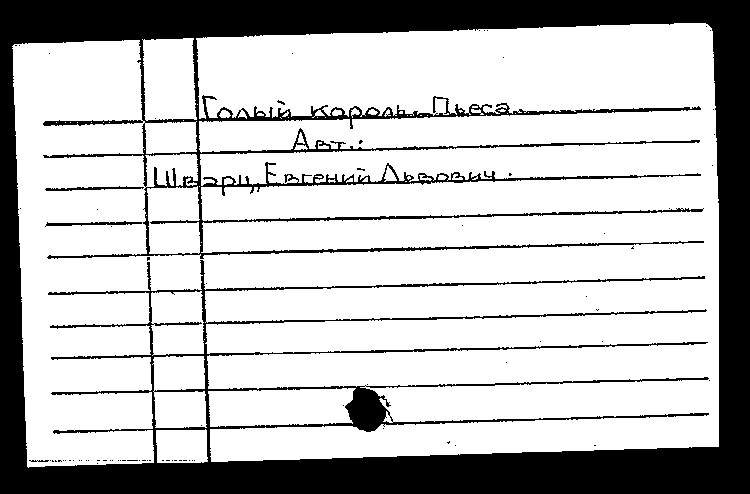 Голый король. Пьеса.
Авт.:
Шварц, Евгений Львович.